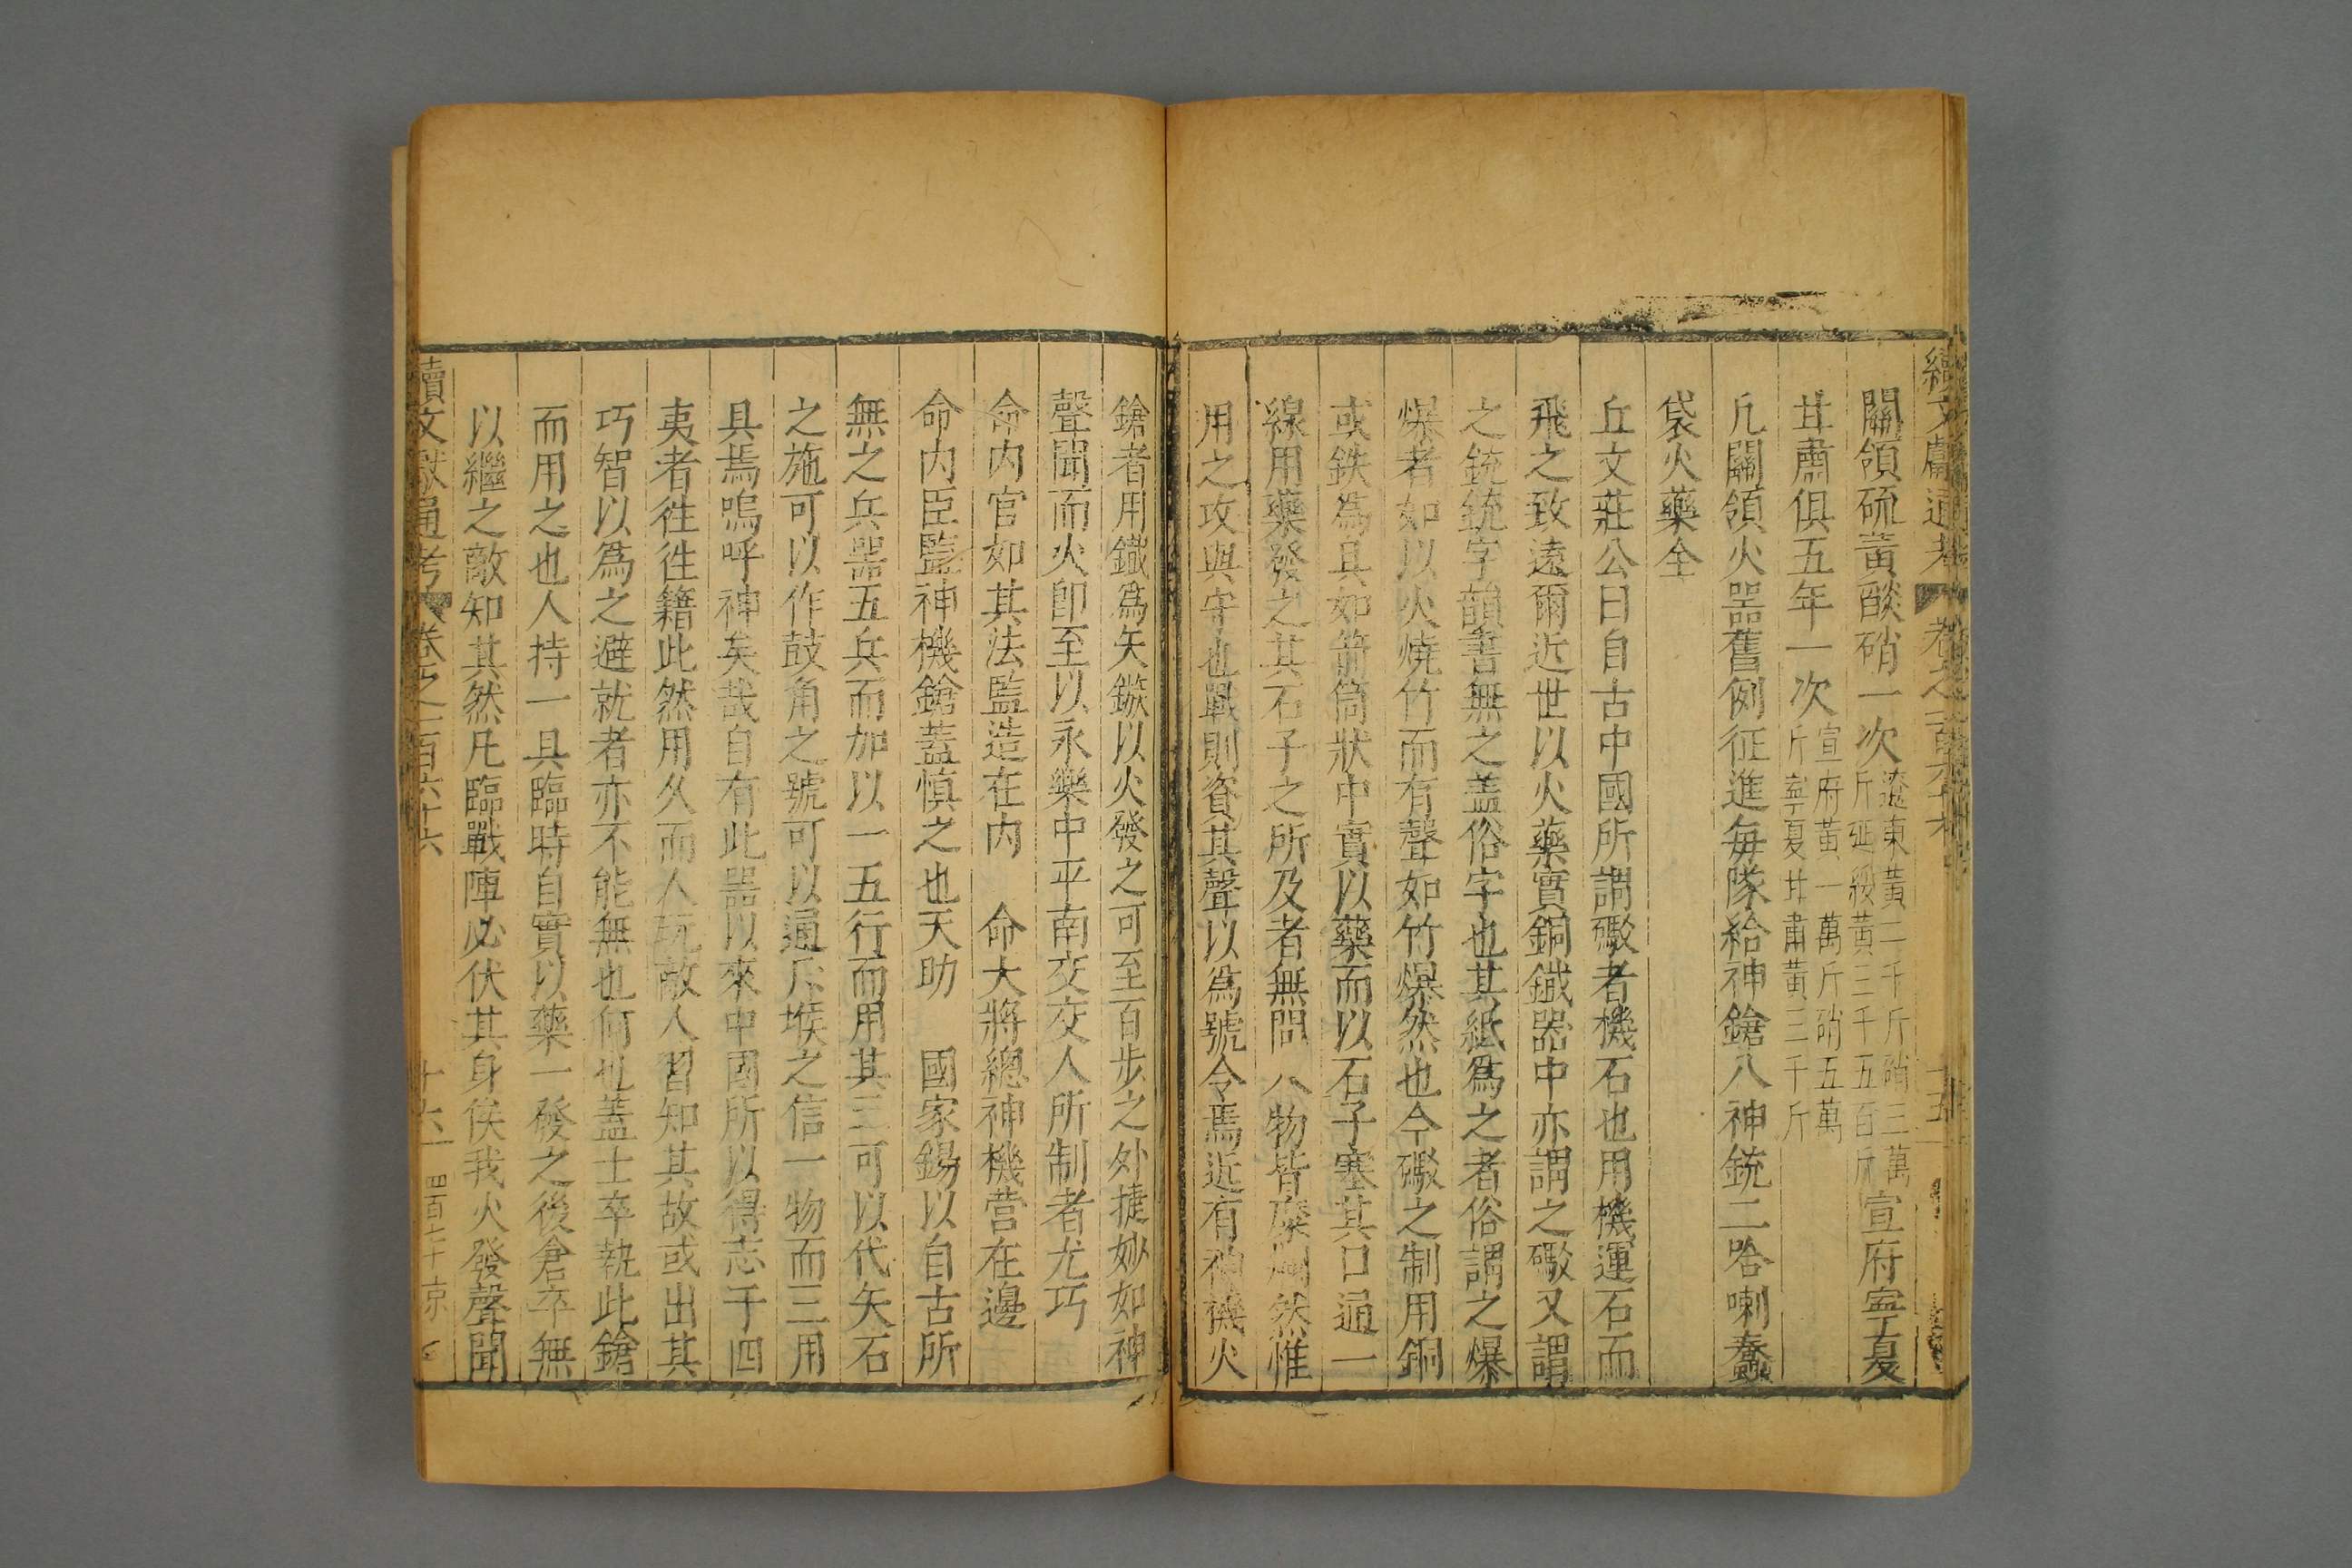 續文獻通考 卷之一百六十六 十五
關領硫黃𦦨硝一次遼東黃二千斤硝三萬斤延綏黃三千五百斤宣府寧夏
甘肅俱五年一次宣府黃一萬斤硝五萬斤寧夏甘肅黃三千斤
凡關領火噐舊例征進每隊給神鎗八神銃二哈喇蠢
袋火藥全
丘文莊公曰自古中國所謂礮者機石也用機運石而
飛之致遠爾近世以火藥實銅鐵噐中亦謂之礮又謂
之銃銃字韻書無之盖俗字也其紙爲之者俗謂之爆
爆者如以火燒竹而有聲如竹爆然也今礮之制用銅
或鉄為具如箭筒狀中實以藥而以石子塞其口通一
線用藥發之其石子之所及者無問人物皆糜爛然惟
用之攻與守也戰則資其聲以爲號令焉近有神機火
鎗者用鐵爲矢鏃以火發之可至百步之外捷妙如神
聲聞而火卽至以永樂中平南交交人所制者尤巧
命内官如其法監造在内 命大將總神機营在邊
命内臣監神機鎗葢慎之也天助 國家錫以自古所
無之兵噐五兵而加以一五行而用其三可以代矢石
之施可以作鼓角之號可以通斥堠之信一物而三用
具焉嗚呼神矣哉自有此噐以來中國所以得志于四
夷者徃徃籍此然用久而人玩敵人習知其故或出其
巧智以爲之避就者亦不能無也何也葢士卒執此鎗
而用之也人持一具臨時自實以藥一發之後倉卒無
以繼之敵知其然凡臨戰陣必伏其身俟我火發聲聞
續文獻通考 卷之一百六十六 十六 四百七十